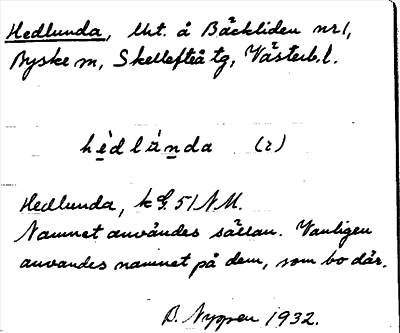 Hedlunda, lht. å Bäckliden nr 1,
Byske sn, Skellefteå tg, Västerb. l.
hèdlánda (2)
Hedlunda, k G. 51 NM.
Namnet användes sällan. Vanligen
användes namnet på dem, som bo där.
B. Nygren 1932.